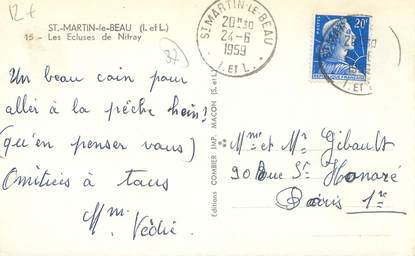 12 €
ST.-MARTIN-le-BEAU (I. et L.)
15 - Les Ecluses de Nitray
37
ST MARTIN-LE-BEAU
20H30
24-6
1959
I. ET L.
20F
Un beau coin pour
aller à la pêche hein?
(qu'en penser vous)
Amitiés à tous
Mm.
Editions COMBIER IMP. MACON (S.-et-L.)
Mme et Mr Gibault
90 Rue St Honoré
Paris 1re